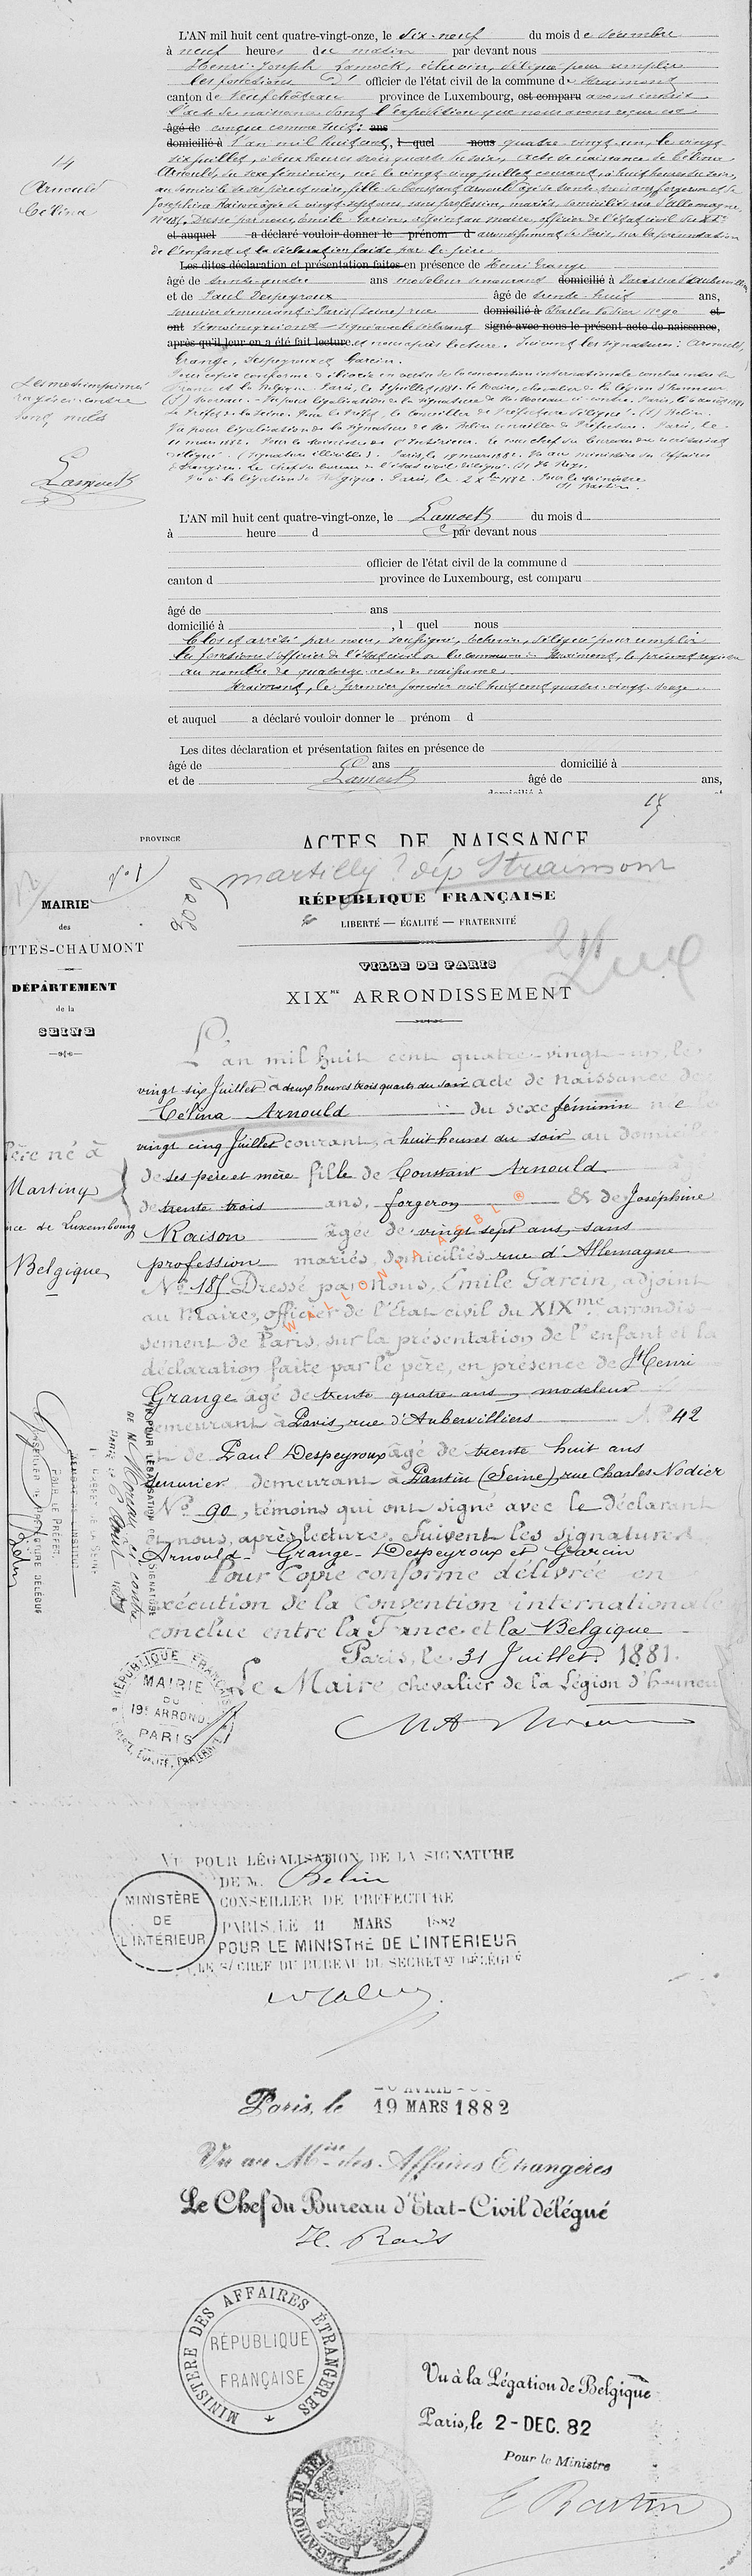 L'AN mil huit cent quatre-vingt-onze, le dix-neuf du mois de décembre
à neuf heures du matin par devant nous
Henri Joseph Lamock, échevin, délégué pour remplir
les fonctions d' officier de l'état civil de la commune de Straimont
canton de Neufchâteau province de Luxembourg, est comparu avons inscrit
l'acte de naissance dont l'expédition que nous avons reçue est
âgé de conçue comme suit: ans
domicilié à L'an mil huit cent, l quel nous quatre-vingt-un, le vingt
six juillet, à deux heures trois quarts du soir, acte de naissance de Célina
Arnould, du sexe féminin, née le vingt cinq juillet courant, à huit heures du soir,
au domicile de ses père et mère, fille de Constant Arnould âgé de trente trois ans, forgeron et de
Joséphine Raison âgée de vingt-sept ans, sans profession, mariés, domiciliés rue d'Allemagne,
N° 185. Dressé par nous, Emile Garcin, adjoint au maire, officier de l'état civil du XIXe
et auquel a déclaré vouloir donner le prénom d arrondissement de Paris, sur la présentation
de l'enfant et la déclaration faite par le père
Les dites déclaration et présentation faites en présence de Henri Grange
âgé de trente-quatre ans modeleur demeurant domicilié à Paris rue d'Aubervilliers
et de Paul Despeyroux âgé de trente-huit ans,
serrurier demeurant à Paris (Seine) rue domicilié à Charles Nodier N° 90 et
ont témoins qui ont signé avec le déclarant signé avec nous le présent acte de naissance,
après qu'il leur en a été fait lecture et nous après lecture. Suivent les signatures: Arnould,
Grange, Despeyroux et Garcin.
Pour copie conforme délivrée en exécution de la convention internationale conclue entre la
France et la Belgique. Paris, le 31 juillet 1881. Le Maire, chevalier de la légion d'honneur
(S) Moreau. Vu pour légalisation de la signature de Mr Moreau ci-contre. Paris, le 6 août 1881
Le Préfet de la Seine. Pour le Préfet, le Conseiller de Préfecture délégué. (S) Belin.
Vu pour légalisation de la signature de Mr Belin conseiller de Préfecture. Paris, le
11 mars 1882. Pour le Ministre de l'Intérieur. Le sous chef du bureau du secrétariat
délégué. (Signature illisible). Paris, le 19 mars 1882. Vu au ministère des Affaires
étrangères. Le Chef du bureau de l'état civil délégué.
Vu à la légation de Belgique. Paris, le 2 Xbre 1882. Pour le ministre
14
Arnould
Célina
Les mots imprimés
rayés ci-contre
sont nuls
Lamock
L'AN mil huit cent quatre-vingt-onze, le Lamock du mois d
à heure d par devant nous
officier de l'état civil de la commune d
canton d province de Luxembourg, est comparu
âgé de ans
domicilié à , l quel nous
Clos et arrêté par nous, soussigné, échevin, délégué pour remplir
les fonctions d'officier de l'état civil de la commune de Straimont, le présent registre
au nombre de quatorze actes de naissance.
Straimont, le premier janvier mil huit cent quatre-vingt-douze
et auquel a déclaré vouloir donner le prénom d
Les dites déclaration et présentation faites en présence de
âgé de ans domicilié à
et de Lamock âgé de ans,
PROVINCE
ACTES DE NAISSANCE
N° 1
martilly? dép Straimont
MAIRIE
des
UTTES-CHAUMONT
DÉPARTEMENT
de la
SEINE
RÉPUBLIQUE FRANÇAISE
LIBERTÉ — ÉGALITÉ — FRATERNITÉ
VILLE DE PARIS
XIXme ARRONDISSEMENT
Lux
L'an mil huit cent quatre-vingt-un, le
vingt six Juillet à deux heures trois quarts du soir acte de naissance de
Célina Arnould du sexe féminin née le
vingt cinq Juillet courant, à huit heures du soir au domicile
de ses père et mère fille de Constant Arnould
de trente trois ans, forgeron & de Joséphine
Raison âgée de vingt sept ans, sans
profession mariés, domiciliés rue d'Allemagne
N° 185 Dressé par Nous, Emile Garcin, adjoint
au Maire, officier de l'Etat civil du XIXme arrondis
sement de Paris, sur la présentation de l'enfant et la
déclaration faite par le père, en présence de Henri
Grange âgé de trente quatre ans, modeleur
demeurant à Paris, rue d'Aubervilliers N° 42
et de Paul Despeyroux âgé de trente huit ans
serrurier demeurant à Pantin (Seine), rue Charles Nodier
N° 90, témoins qui ont signé avec le déclarant
et nous, après lecture. Suivent les signatures
Arnould - Grange - Despeyroux et Garcin
Pour Copie conforme délivrée en
exécution de la Convention internationale
conclue entre la France et la Belgique
Paris, le 31 Juillet 1881.
Le Maire, chevalier de la Légion d'honneur
Père né à
Martiny
nce de Luxembourg
Belgique
WALLONIA ASBL ®
VU POUR LÉGALISATION DE LA SIGNATURE
POUR LE PRÉFET,
CONSEILLER DE PRÉFECTURE DÉLÉGUÉ
Belin
RÉPUBLIQUE FRANÇAISE
MAIRIE
DU
19E ARRONDt
PARIS
LIBERTÉ, ÉGALITÉ, FRATERNITÉ
VU POUR LÉGALISATION DE LA SIGNATURE
DE M. Belin
CONSEILLER DE PREFECTURE
PARIS, LE 11 MARS 1882
POUR LE MINISTRE DE L'INTERIEUR
LE S/CHEF DU BUREAU DU SECRETAT DÉLÉGUÉ
MINISTÈRE
DE
L'INTÉRIEUR
Paris, le 19 MARS 1882
Vu au Mre des Affaires Etrangères
Le Chef du Bureau d'Etat-Civil délégué
MINISTÈRE DES AFFAIRES ÉTRANGÈRES
RÉPUBLIQUE
FRANÇAISE
Vu à la Légation de Belgique
Paris, le 2 - DEC. 82
Pour le Ministre
LÉGATION DE BELGIQUE